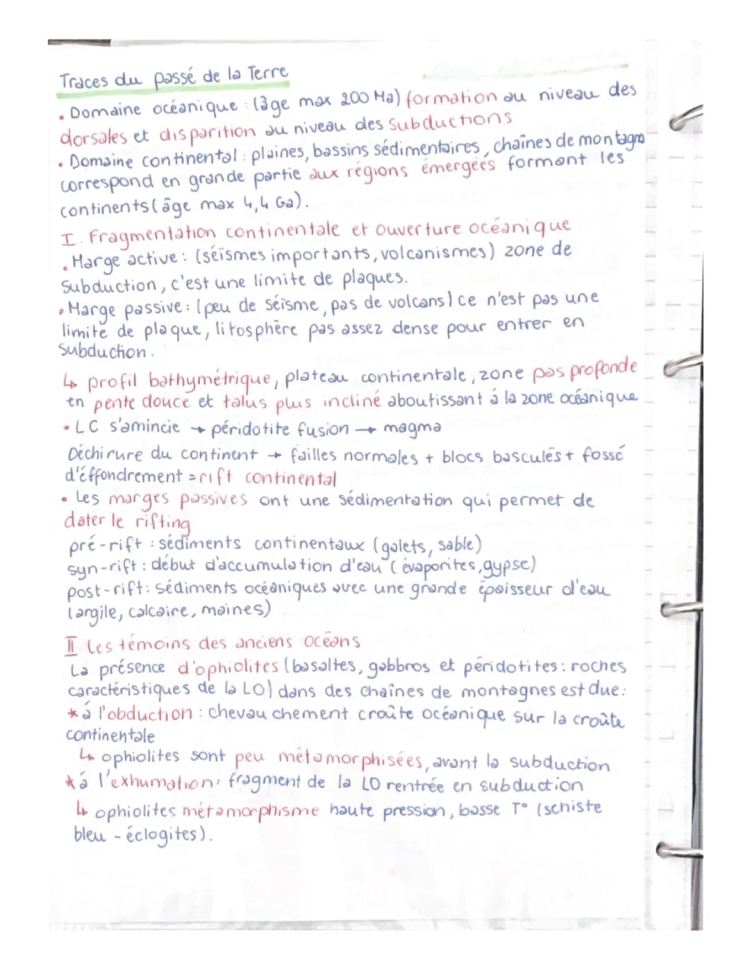 Traces du passé de la Terre
• Domaine océanique : (âge max 200 Ma) formation au niveau des
dorsales et disparition au niveau des subductions
• Domaine continental : plaines, bassins sédimentaires, chaînes de montagne
correspond en grande partie aux régions émergées formant les
continents (âge max 4,4 Ga).
I. Fragmentation continentale et ouverture océanique
• Marge active : (séismes importants, volcanismes) zone de
subduction, c'est une limite de plaques.
• Marge passive : (peu de séisme, pas de volcans) ce n'est pas une
limite de plaque, litosphère pas assez dense pour entrer en
subduction.
↳ profil bathymétrique, plateau continentale, zone pas profonde
en pente douce et talus plus incliné aboutissant à la zone océanique
• LC s'amincie → péridotite fusion → magma
Déchirure du continent → failles normales + blocs basculés + fossé
d'éffondrement = rift continental
• Les marges passives ont une sédimentation qui permet de
dater le rifting
pré-rift : sédiments continentaux (galets, sable)
syn-rift : début d'accumulation d'eau (évaporites, gypse)
post-rift : sédiments océaniques avec une grande épaisseur d'eau
(argile, calcaire, maines)
II Les témoins des anciens océans
La présence d'ophiolites (basaltes, gabbros et péridotites : roches
caractéristiques de la LO) dans des chaînes de montagnes est due :
* à l'obduction : chevauchement croûte océanique sur la croûte
continentale
↳ ophiolites sont peu métamorphisées, avant la subduction
* à l'exhumation : fragment de la LO rentrée en subduction
↳ ophiolites métamorphisme haute pression, basse T° (schiste
bleu - éclogites).